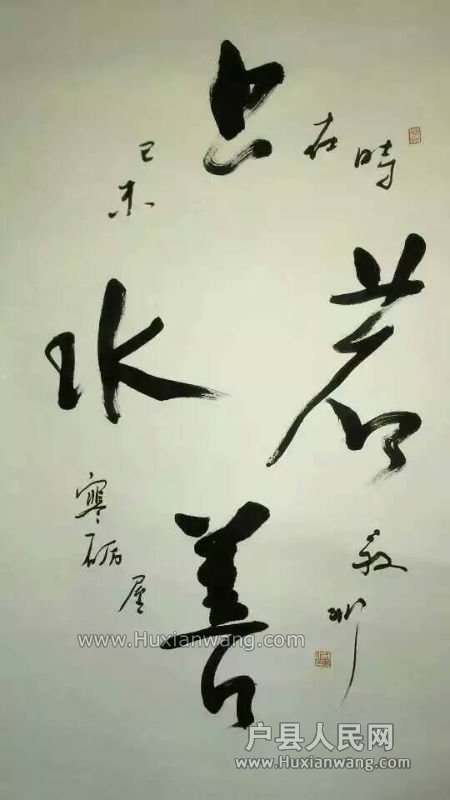 上
善
若
水
時在
己未
寒砺屋
www.Huxianwang.com
户县人民网
www.Huxianwang.com